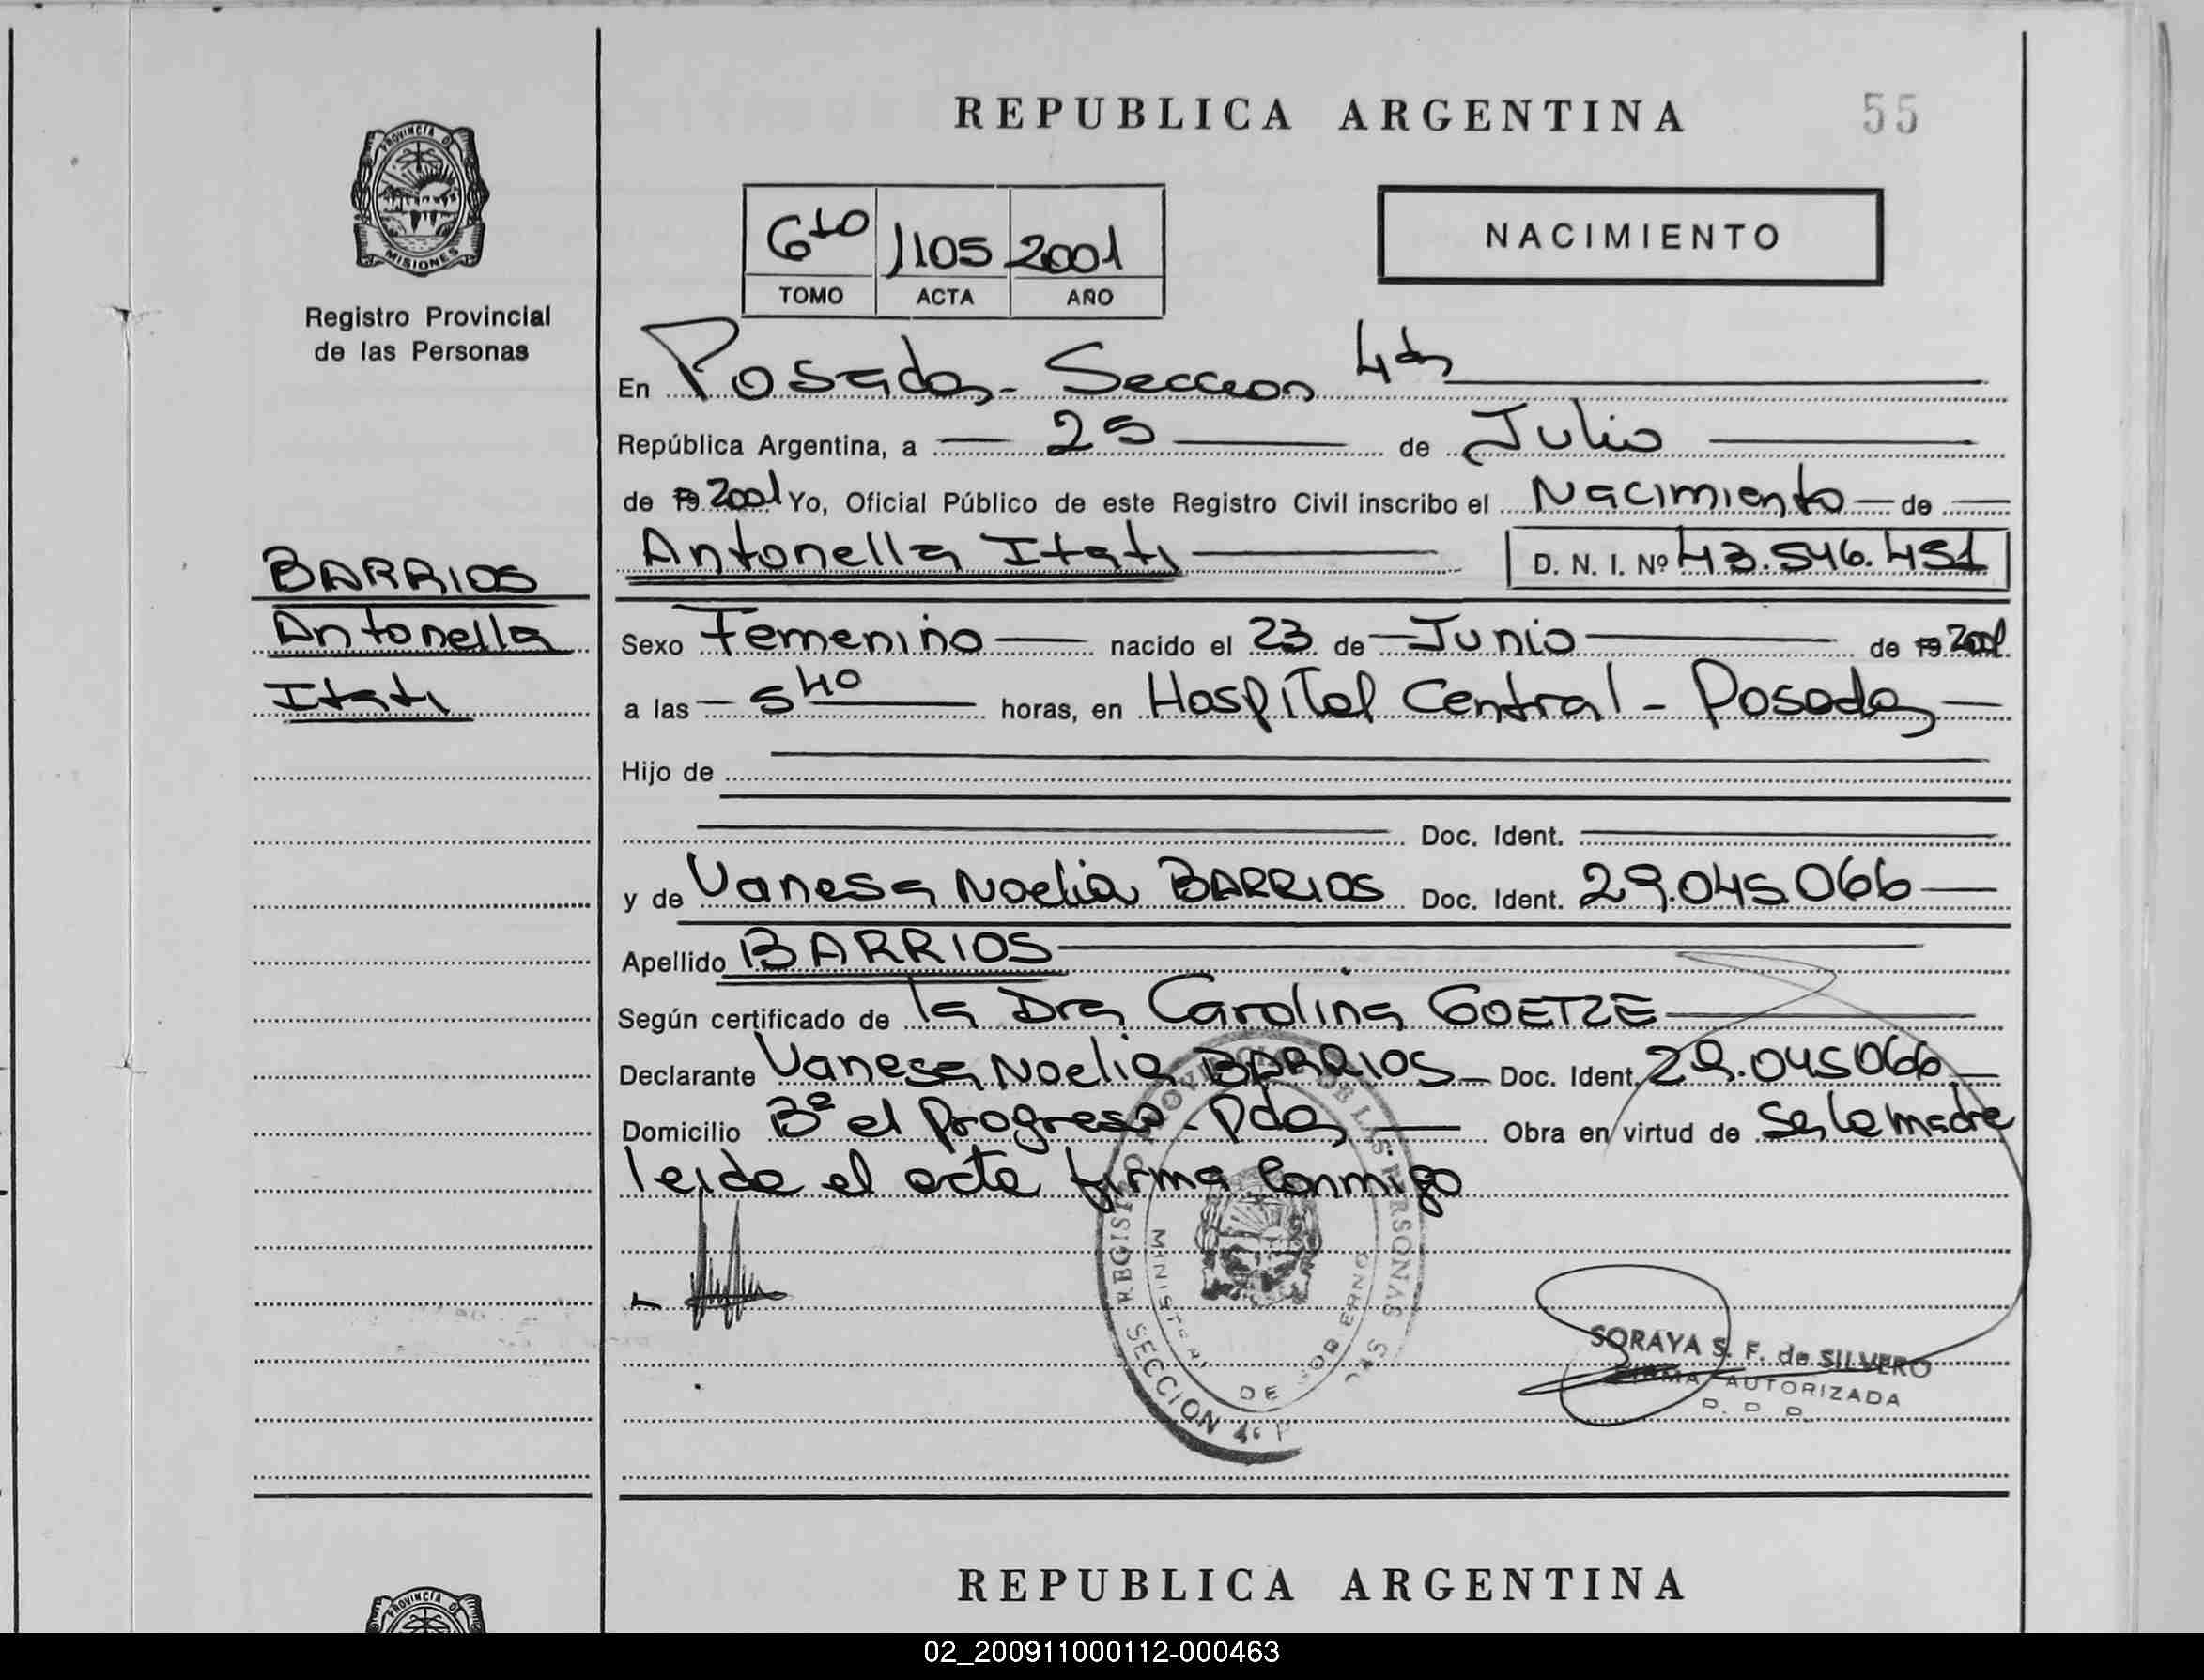 REPUBLICA ARGENTINA
55
PROVINCIA DE
MISIONES
Registro Provincial
de las Personas
6to 1105 2001
TOMO ACTA AÑO
NACIMIENTO
En Posadas - Seccion 4ta
República Argentina, a 25 de Julio
de 19 2001 Yo, Oficial Público de este Registro Civil inscribo el Nacimiento de
Antonella Itati D. N. I. Nº 43.546.451
BARRIOS
Antonella
Itati
Sexo Femenino nacido el 23 de Junio de 19 2001
a las 5 40 horas, en Hospital Central - Posadas
Hijo de
Doc. Ident.
y de Vanesa Noelia BARRIOS Doc. Ident. 29.045.066
Apellido BARRIOS
Según certificado de la Dra Carolina GOETZE
Declarante Vanesa Noelia BARRIOS Doc. Ident. 29.045066
Domicilio Bº el Progreso - Pdas Obra en virtud de Ser la madre
leida el acta firma Conmigo
REGISTRO PROVINCIAL DE LAS PERSONAS
MINISTERIO DE GOBIERNO
SECCION 4ª
SORAYA S. F. de SILVERO
FIRMA AUTORIZADA
REPUBLICA ARGENTINA
PROVINCIA DE
02_200911000112-000463